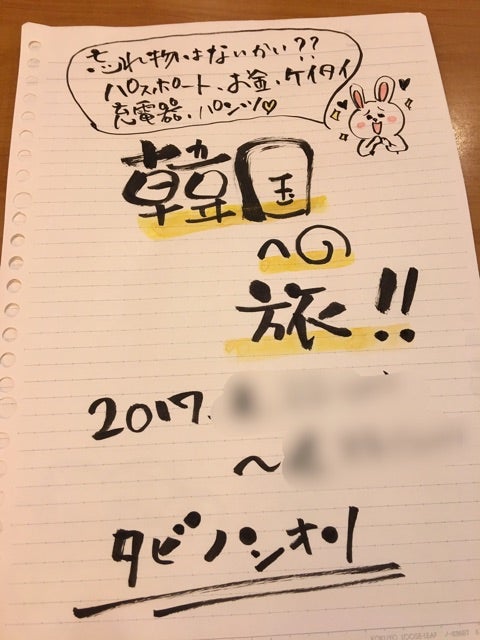 忘れ物はないかい??
パスポート、お金、ケイタイ
充電器、パンツ♡
韓国
への
旅!!
2017.
〜
タビノシオリ